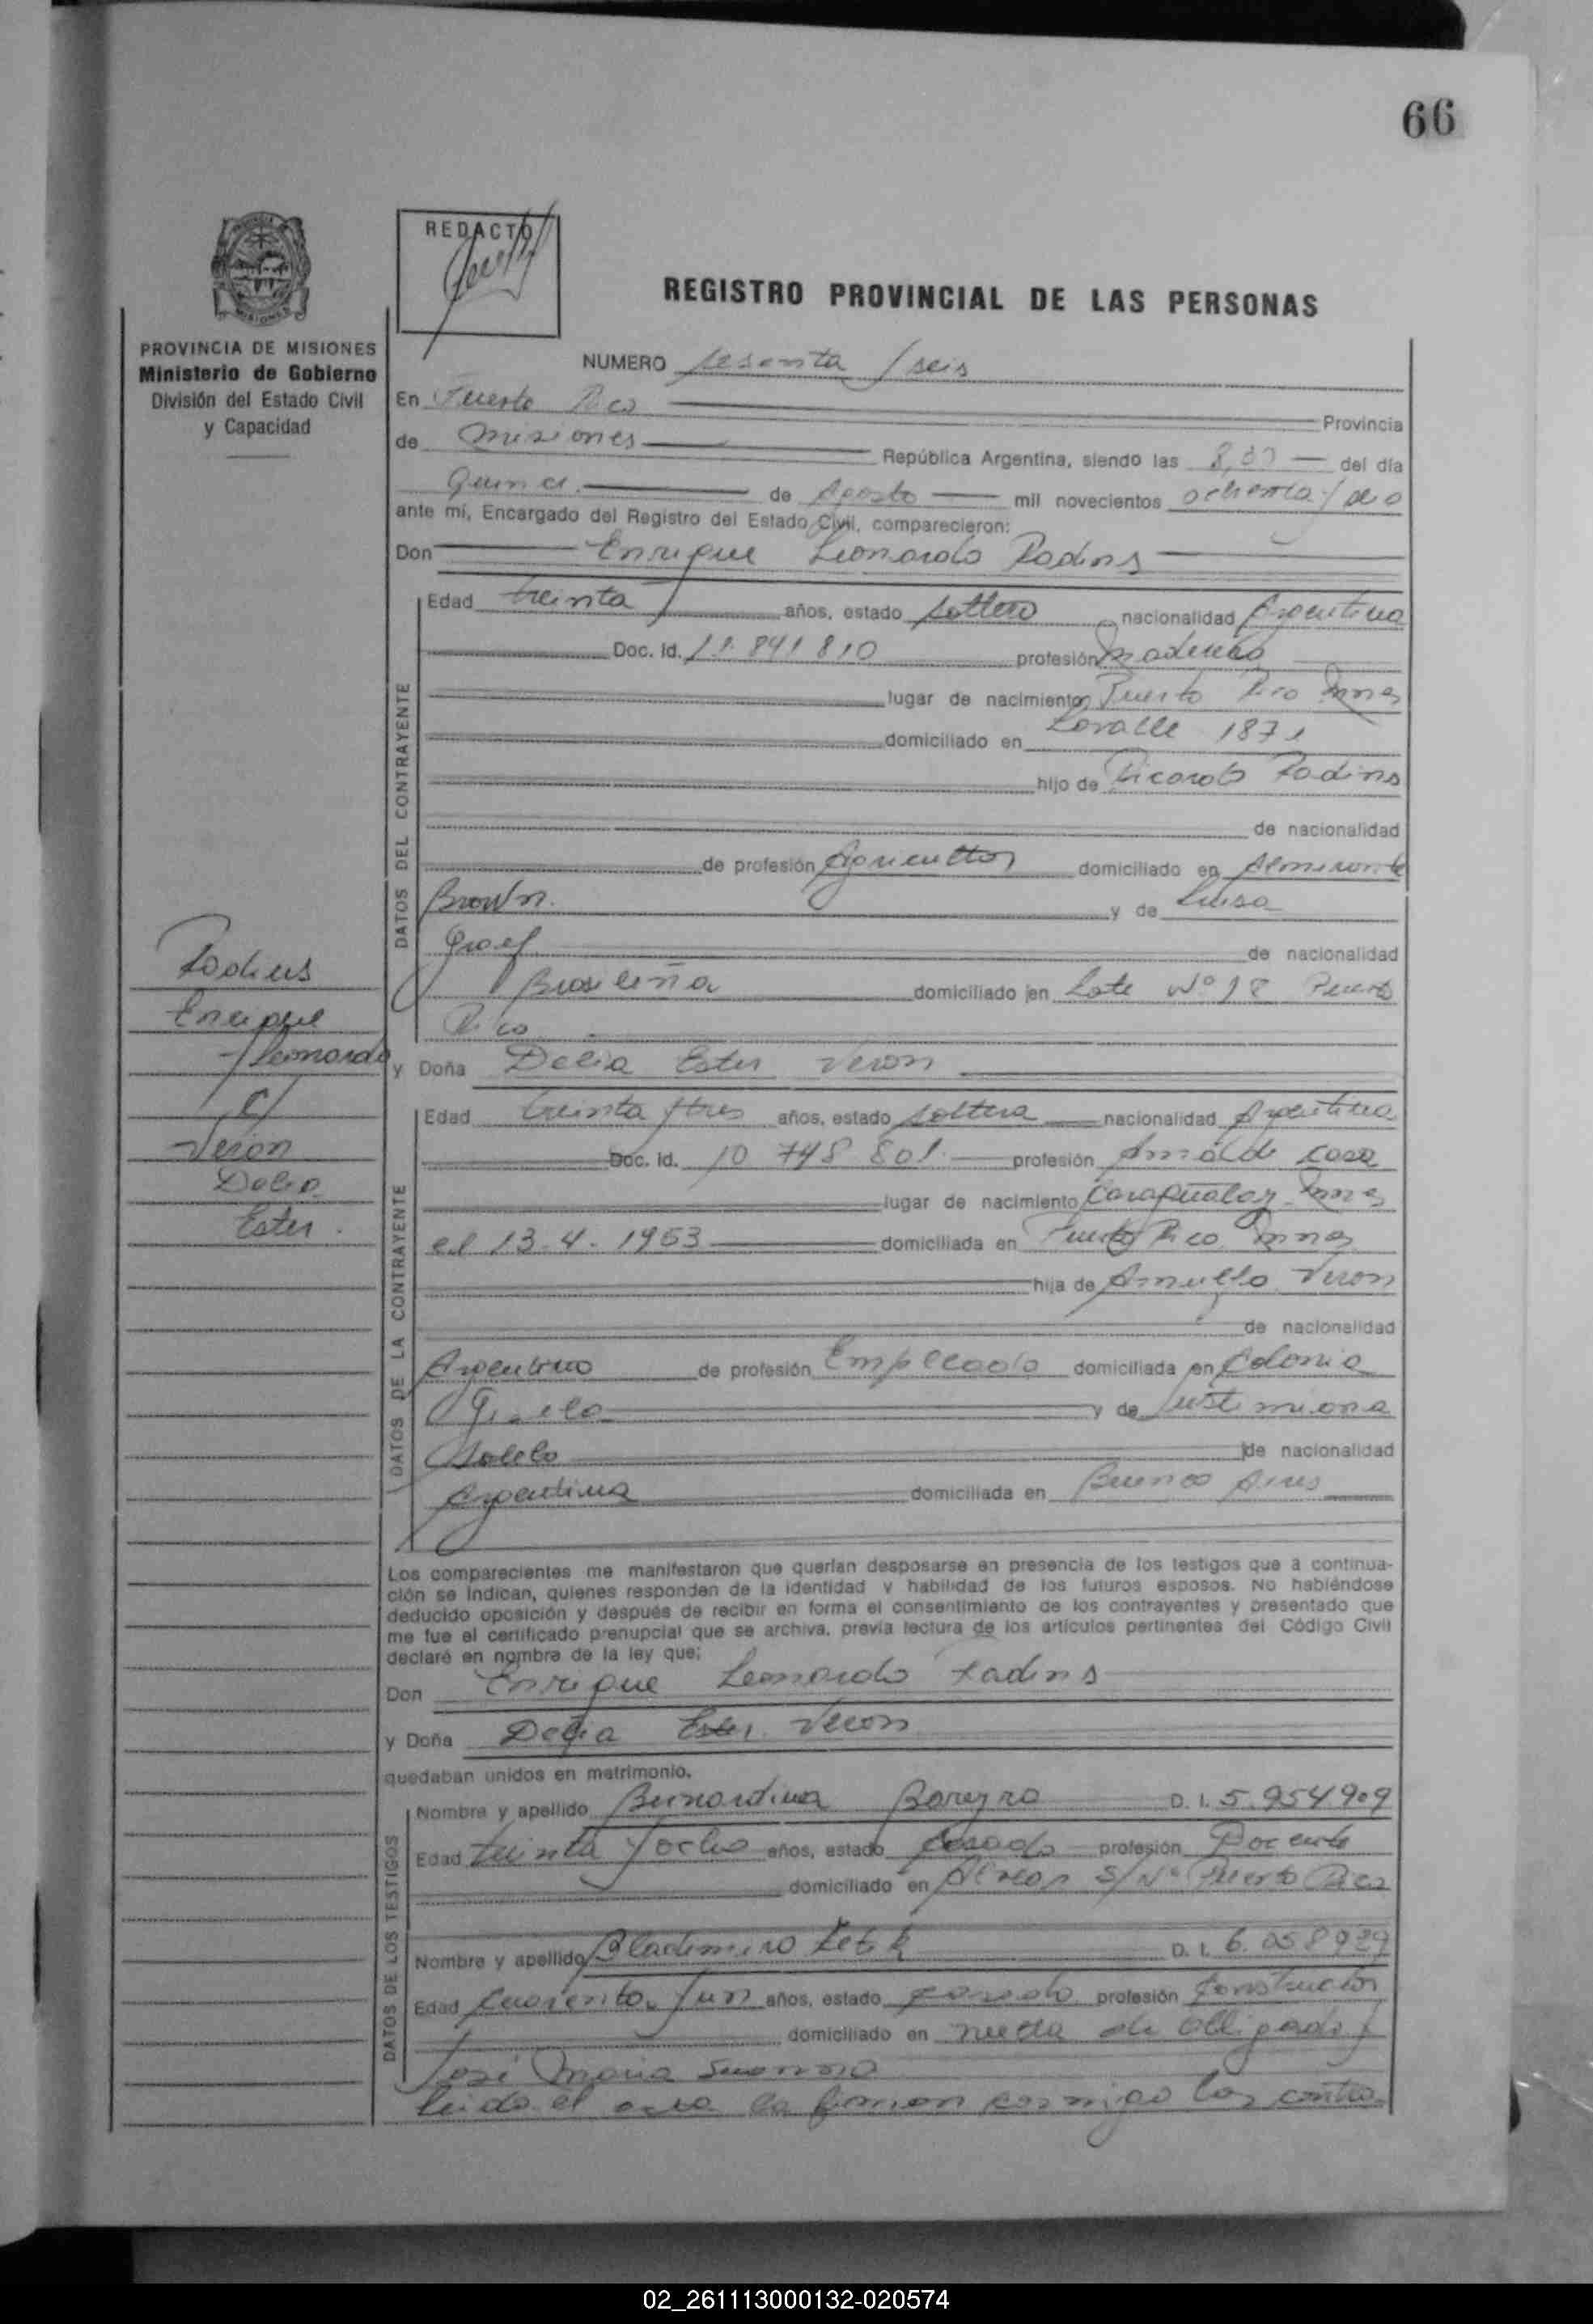 66
REDACTO
REGISTRO PROVINCIAL DE LAS PERSONAS
PROVINCIA DE MISIONES
Ministerio de Gobierno
División del Estado Civil
y Capacidad
NUMERO sesenta y seis
En Puerto Rico Provincia
de Misiones República Argentina, siendo las 8,00 del día
Quince de Agosto mil novecientos ochenta y
ante mí, Encargado del Registro del Estado Civil, comparecieron:
Don Enrique Leonardo Radins
DATOS DEL CONTRAYENTE
Edad treinta años, estado soltero nacionalidad Argentina
Doc. Id. 11.841 810 profesión maderero
lugar de nacimiento Puerto Rico Mnes
domiciliado en Lavalle 1871
hijo de Ricardo Radins
de nacionalidad
de profesión Agricultor domiciliado en Almirante
Brown. y de Luisa
Graef de nacionalidad
Brasileña domiciliado en Lote Nº 18 Puerto
Rico
Radins
Enrique
Leonardo
c/
Veron
Delia
Ester.
y Doña Delia Ester Veron
DATOS DE LA CONTRAYENTE
Edad treinta y tres años, estado soltera nacionalidad Argentina
Doc. Id. 10 748 801. profesión Ama de casa
lugar de nacimiento Caraguatay Mnes
el 13-4-1953 domiciliada en Puerto Rico Mnes
hija de Arnulfo Veron
de nacionalidad
Argentino de profesión Empleado domiciliada en Colonia
Gisela y de Justiniana
Sotelo de nacionalidad
Argentina domiciliada en Buenos Aires
Los comparecientes me manifestaron que querían desposarse en presencia de los testigos que a continua-
ción se indican, quienes responden de la identidad y habilidad de los futuros esposos. No habiéndose
deducido oposición y después de recibir en forma el consentimiento de los contrayentes y presentado que
me fue el certificado prenupcial que se archiva, previa lectura de los artículos pertinentes del Código Civil
declaré en nombre de la ley que:
Don Enrique Leonardo Radins
y Doña Delia Ester Veron
quedaban unidos en matrimonio.
DATOS DE LOS TESTIGOS
Nombre y apellido Bernardina Bareyro D. I. 5.954909
Edad treinta y ocho años, estado casada profesión Docente
domiciliado en S/Nº Puerto Rico
Nombre y apellido Bladimiro D. I. 6.058929
Edad cuarenta y un años, estado casado profesión Constructor
domiciliado en vuelta de obligado y
José Maria
leida el acta la firman conmigo los contra
02_261113000132-020574